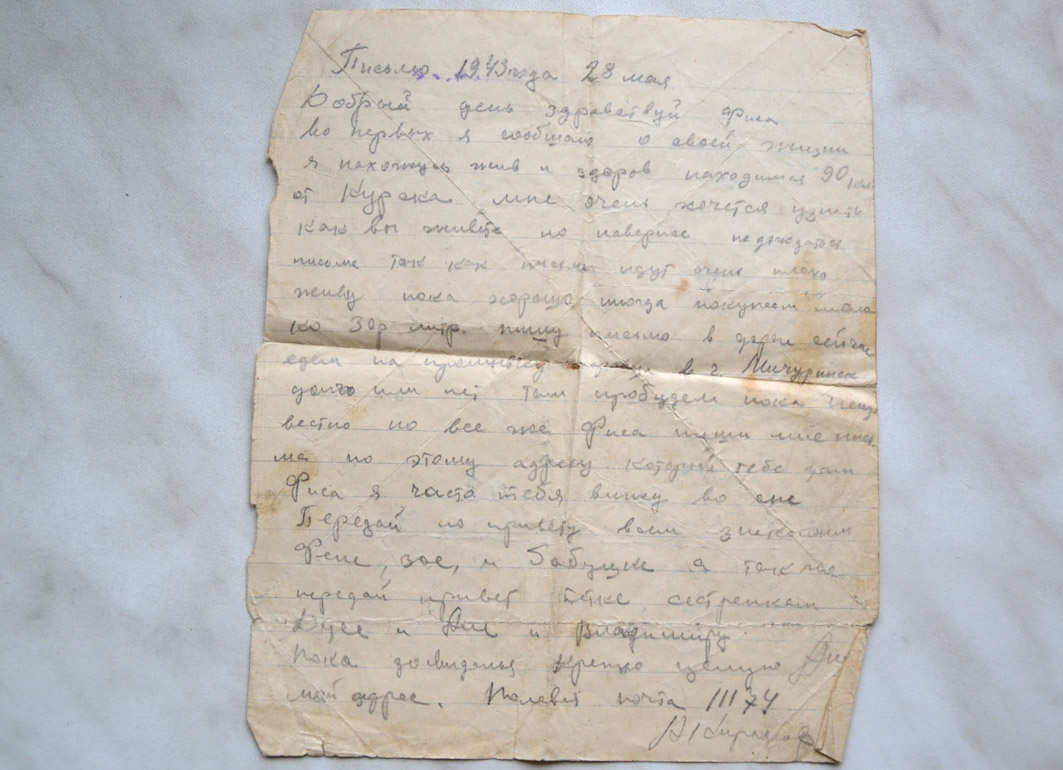 Письмо 1943 года 28 мая
Добрый день здравствуй Фиса
во первых я сообщаю о своей жизни
я нахожусь жив и здоров находимся 90 клм
от Курска мне очень хочется узнать
как вы живете но наверное не дождаться
письма так как письма идут очень плохо
живу пока хорошо иногда покупаем моло
ко 30р литр. пишу письмо в дороге сейчас
едем на в г. Мичуринск
долго или нет там пробудем пока неиз
вестно но все же Фиса пиши мне пись
ма по этому адресу который тебе дали
Фиса я часта тебя вижу во сне
Передай по привету всем знакомым
Фене, зое, и бабушке а так же
передай привет тетке сестренкам
и и Владимиру
Пока до виданья крепко целую
мой адрес. Полевая почта 11174